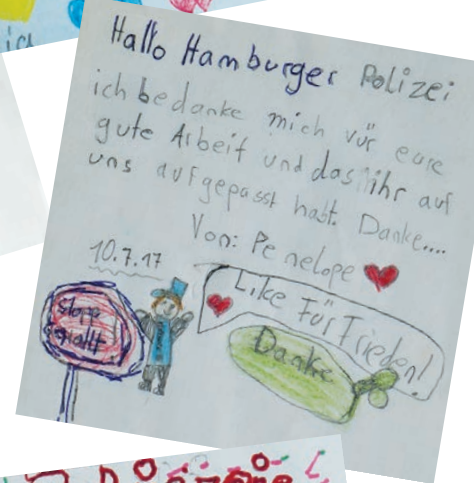 Hallo Hamburger Polizei
ich bedanke mich vür eure
gute Arbeit und das ihr auf
uns aufgepasst habt. Danke....
Von: Penelope
10.7.17
Like Für Frieden!
Stoppt
Danke